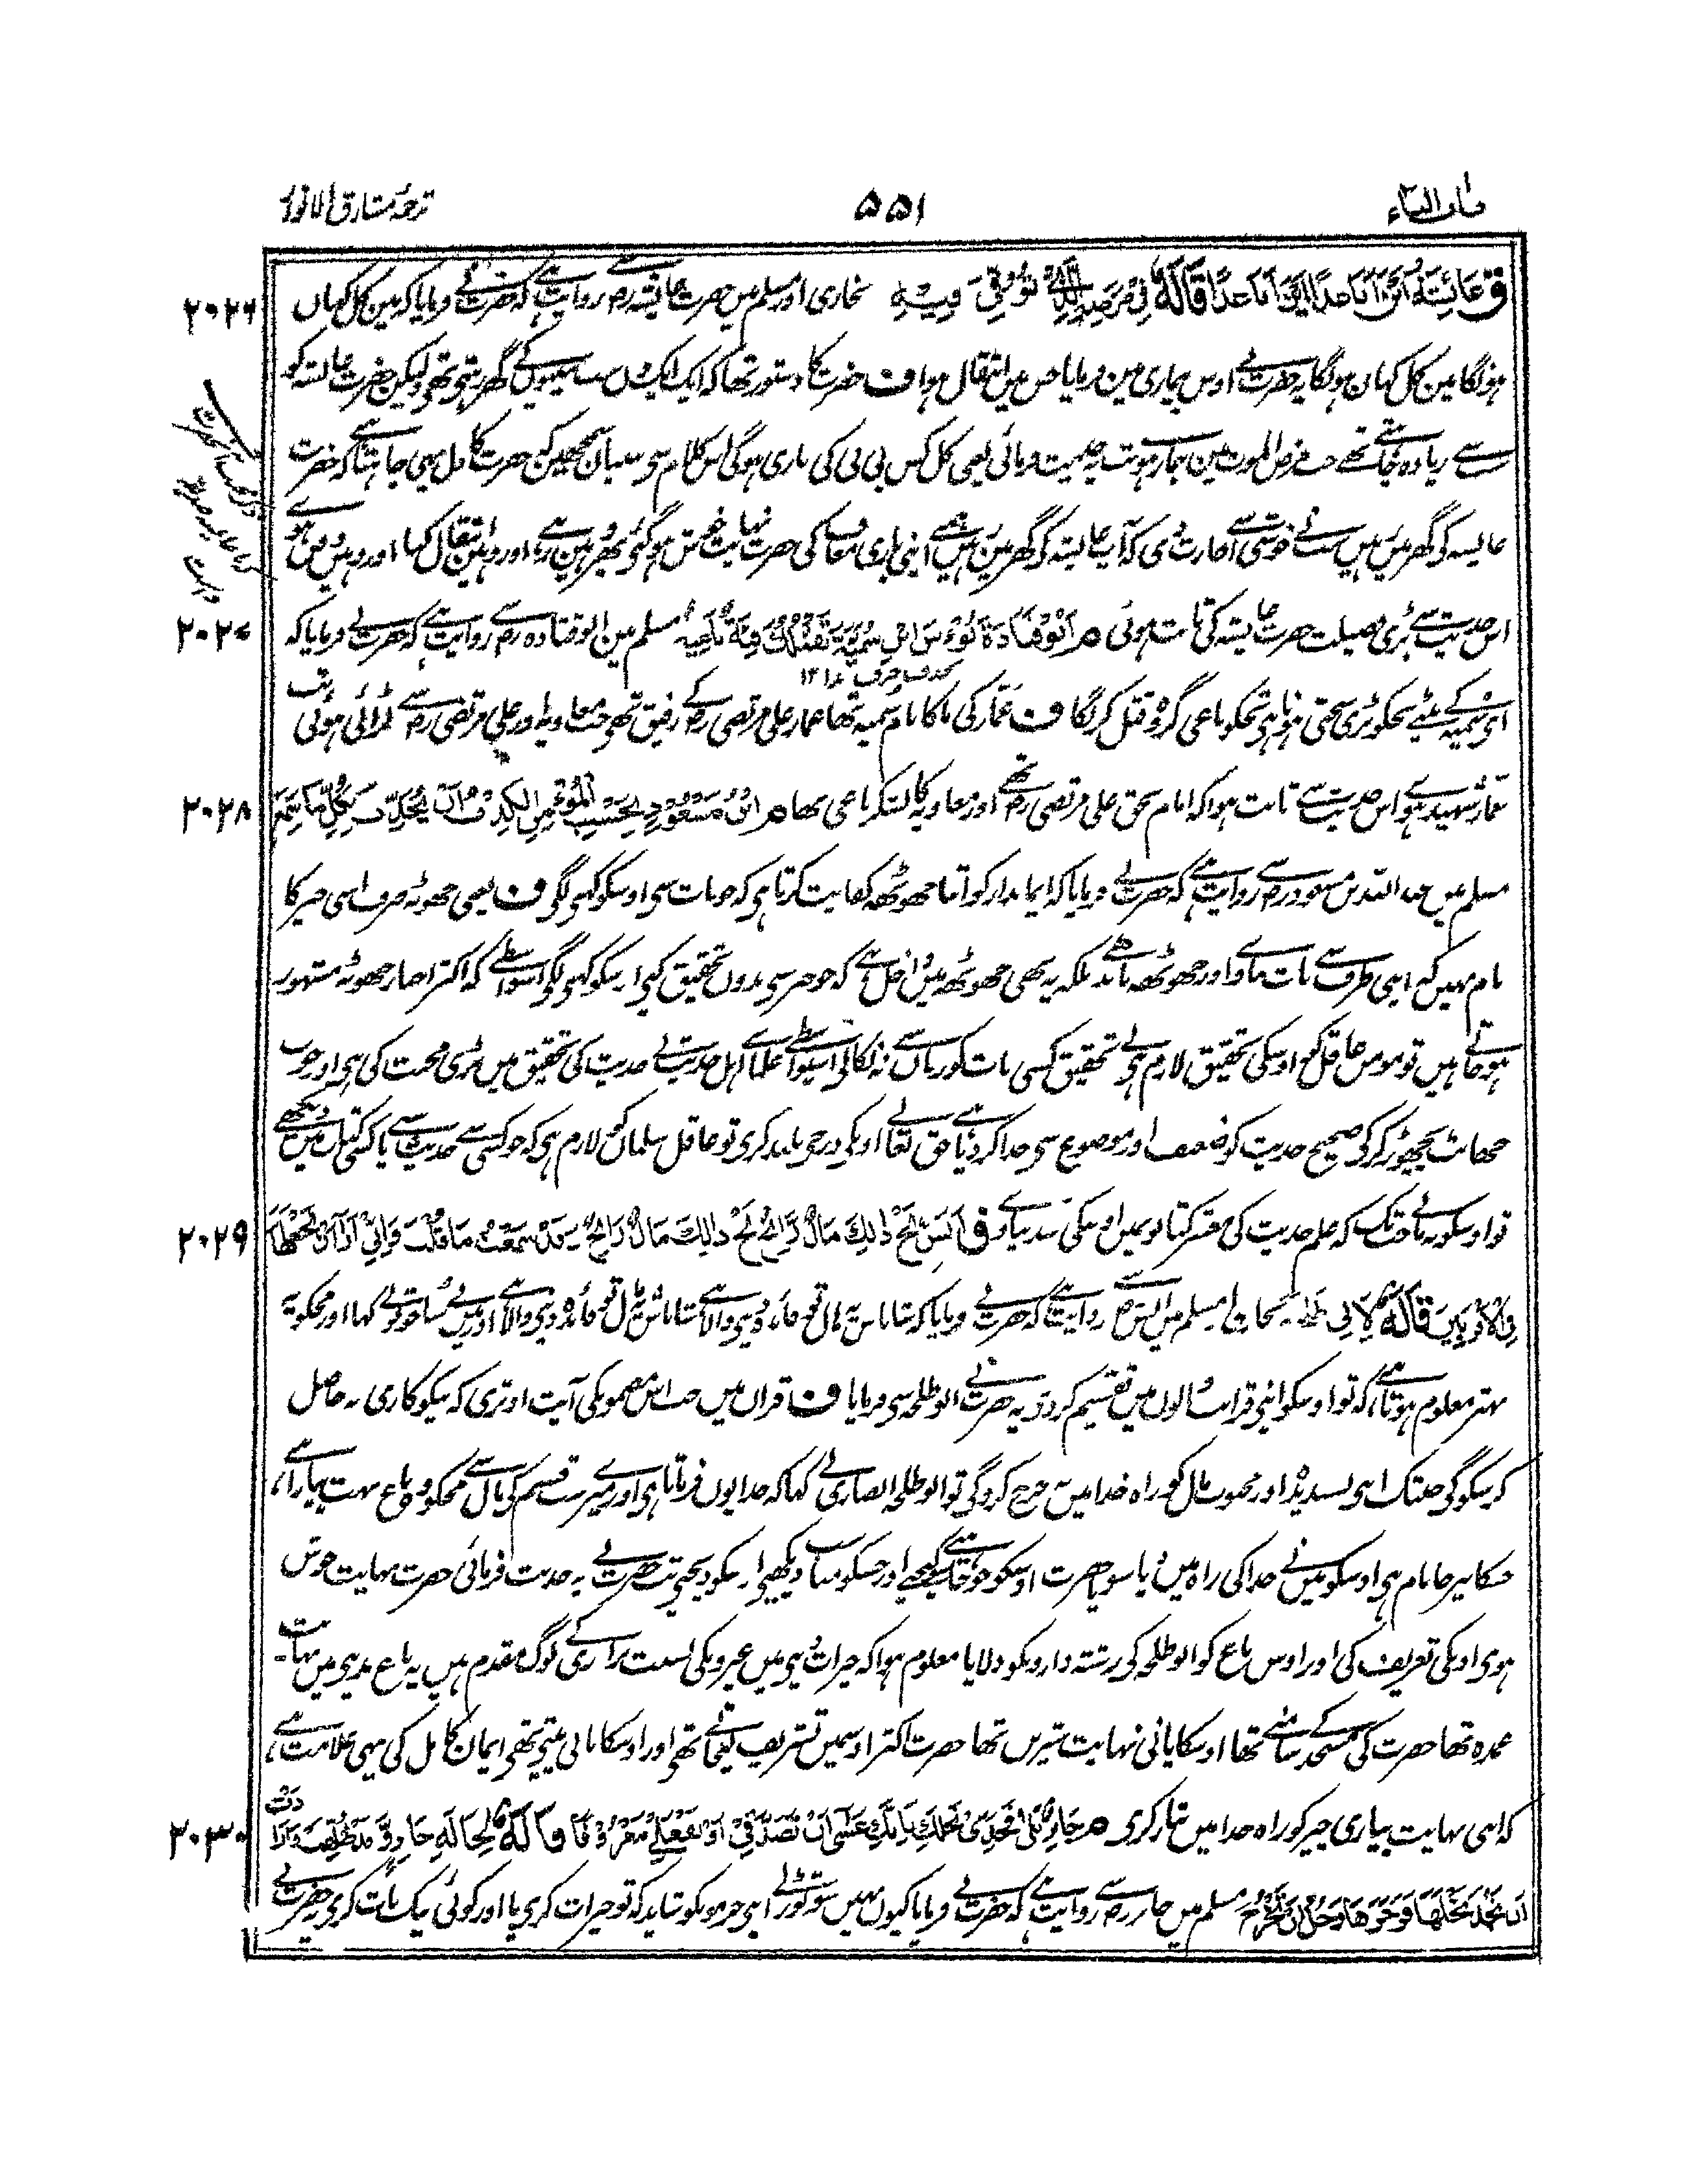 ترجمہ مشارق الانوار
۵۵۱
باب التاء
۲۰۲۶
ق عائشة أين أنا غدا أين أنا غدا قاله في مرضه الذي توفي فيه بخاری اور مسلم میں حضرت عایشہ رض سے روایت ہے کہ حضرت نے فرمایا کہ مین کل کہاں
ہونگا مین کل کہان ہونگا یہ حضرت نے اوس بیماری مین فرمایا جس میں انتقال ہوا ف حضرت کا دستور تھا کہ ایک ایک دن سب بیبیوں کے گھر رہتے تھے ولیکن حضرت عایشہ کو
سب سے زیادہ چاہتے تھے جب مرض الموت مین بیمار ہوئے تب یہ حدیث فرمائی یعنی کل کس بی بی کی باری ہوگی اس کلام سے بیبیان سمجھین کہ حضرت کا دل یہی چاہتا ہے کہ حضرت
عایشہ کے گھر میں رہیں سب نے خوشی سے اجازت دی کہ آپ عایشہ کے گھر میں رہیں ہمنے اپنی باری معاف کی حضرت نہایت خوش ہوگئے پھر وہیں رہے اور وہیں انتقال کیا اور وہیں دفن ہوئے
۲۰۲۷
اس حدیث سے بڑی فضیلت حضرت عایشہ کی ثابت ہوئی م أبو قتادة بؤس ابن سمية تقتلك فئة باغية مسلم مین ابو قتادہ رض سے روایت ہے کہ حضرت نے فرمایا کہ
بحذف حرف ندا ۱۲
ای سمیہ کے بیٹے تجکو بڑی سختی ہونا ہی تجکو باغی گروہ قتل کریگا ف عمار کی ما کا نام سمیہ تھا عمار علی مرتضی رض کے رفیق تھے جب معاویہ اور علی مرتضی رض سے لڑائی ہوئی تب
۲۰۲۸
عمار شہید ہوے اس حدیث سے ثابت ہوا کہ امام بحق علی مرتضی رض تھے اور معاویہ کا لشکر باغی تھا م ابن مسعود بحسب المؤمن من الكذب أن يحدث بكل ما سمع
مسلم میں عبد اللہ بن مسعود رض سے روایت ہے کہ حضرت نے فرمایا کہ ایماندار کو اتنا جھوٹھ کفایت کرتا ہی کہ جو بات سنے اوسکو کہنے لگے ف یعنی جھوٹھ صرف اسی چیز کا
نام نہیں کہ اپنی طرف سے بات بناوے اور جھوٹھ باندھے بلکہ یہ بھی جھوٹھ میں داخل ہے کہ جو خبر سنے بدون تحقیق کیے اسکو کہنے لگے اسواسطے کہ اکثر اخبار جھوٹھ مشہور
ہو جاتے ہیں تو مومن عاقل کو اوسکی تحقیق لازم ہی بے تحقیق کسی بات کو زبان سے نہ نکالے اسیواسطے علماے اہل حدیث نے حدیث کی تحقیق میں بڑی محنت کی ہی اور خوب
چھانٹ پچھوڑ کر کے صحیح حدیث کو ضعیف اور موضوع سے جدا کر دیا ہے حق تعالے اونکے درجے بلند کرے تو عاقل مسلمان کو لازم ہی کہ جو کسی سے حدیث سنے یا کسی کتاب میں دیکھے
۲۰۲۹
تو اوسکو نہ مانے جب تک کہ علم حدیث کی معتبر کتابوں میں اوسکی سند نپاوے ق أنس بخ ذلك مال رابح بخ ذلك مال رابح وقد سمعت ما قلت وإني أرى أن تجعلها
في الأقربين قاله لأبي طلحة بخاری مسلم میں انس رض سے روایت ہے کہ حضرت نے فرمایا کہ شاباش یہ مال تو فائدہ دینے والا ہے شاباش یہ مال تو فائدہ دینے والا ہے اور میں نے سنا جو تونے کہا اور مجکو یہ
بہتر معلوم ہوتا ہے کہ تو اوسکو اپنے قرابت والوں میں تقسیم کردے یہ حضرت نے ابو طلحہ سے فرمایا ف قرآن میں جب اس مضمون کی آیت اوتری کہ نیکوکاری نہ حاصل
کر سکوگے جبتک اپنے پسندیدہ اور محبوب مال کو راہ خدا میں نہ خرچ کروگے تو ابو طلحہ انصاری نے کہا کہ خدا یوں فرماتا ہی اور میرے سب قسم کے مال سے مجکو وہ باغ بہت پیارا ہے
جسکا بیرحا نام ہی اوسکو میں نے خدا کی راہ میں دیا سو یا حضرت اوسکو جو چاہیے کیجیے اور جسکو مناسب دیکھیے اسکو دیجیے تب حضرت نے یہ حدیث فرمائی حضرت نہایت خوش
ہوے اونکی تعریف کی اور اوس باغ کو ابو طلحہ کے رشتہ دارونکو دلایا معلوم ہوا کہ خیرات دینے میں غیرونکی نسبت برادری کے لوگ مقدم ہیں یہ باغ مدینے میں نہایت
عمدہ تھا حضرت کی مسجد کے سامنے تھا اوسکا پانی نہایت شیریں تھا حضرت اکثر اوسمیں تشریف لیجاتے تھے اور اوسکا پانی پیتے تھے ایمان کامل کی یہی علامت ہے
۲۰۳۰
کہ اپنی نہایت پیاری چیز کو راہ خدا میں نثار کرے م جابر بلى فجدي نخلك فإنك عسى أن تصدقي أو تفعلي معروفا قاله لخالة جابر وقد طلقت فأرادت
أن تجد نخلها فزجرها رجل أن تخرج مسلم میں جابر رض سے روایت ہے کہ حضرت نے فرمایا کیوں نہیں سو تو توڑلے اپنے خرمونکو شاید کہ تو خیرات کرے یا اور کوئی نیک بات کرے یہ حضرت نے